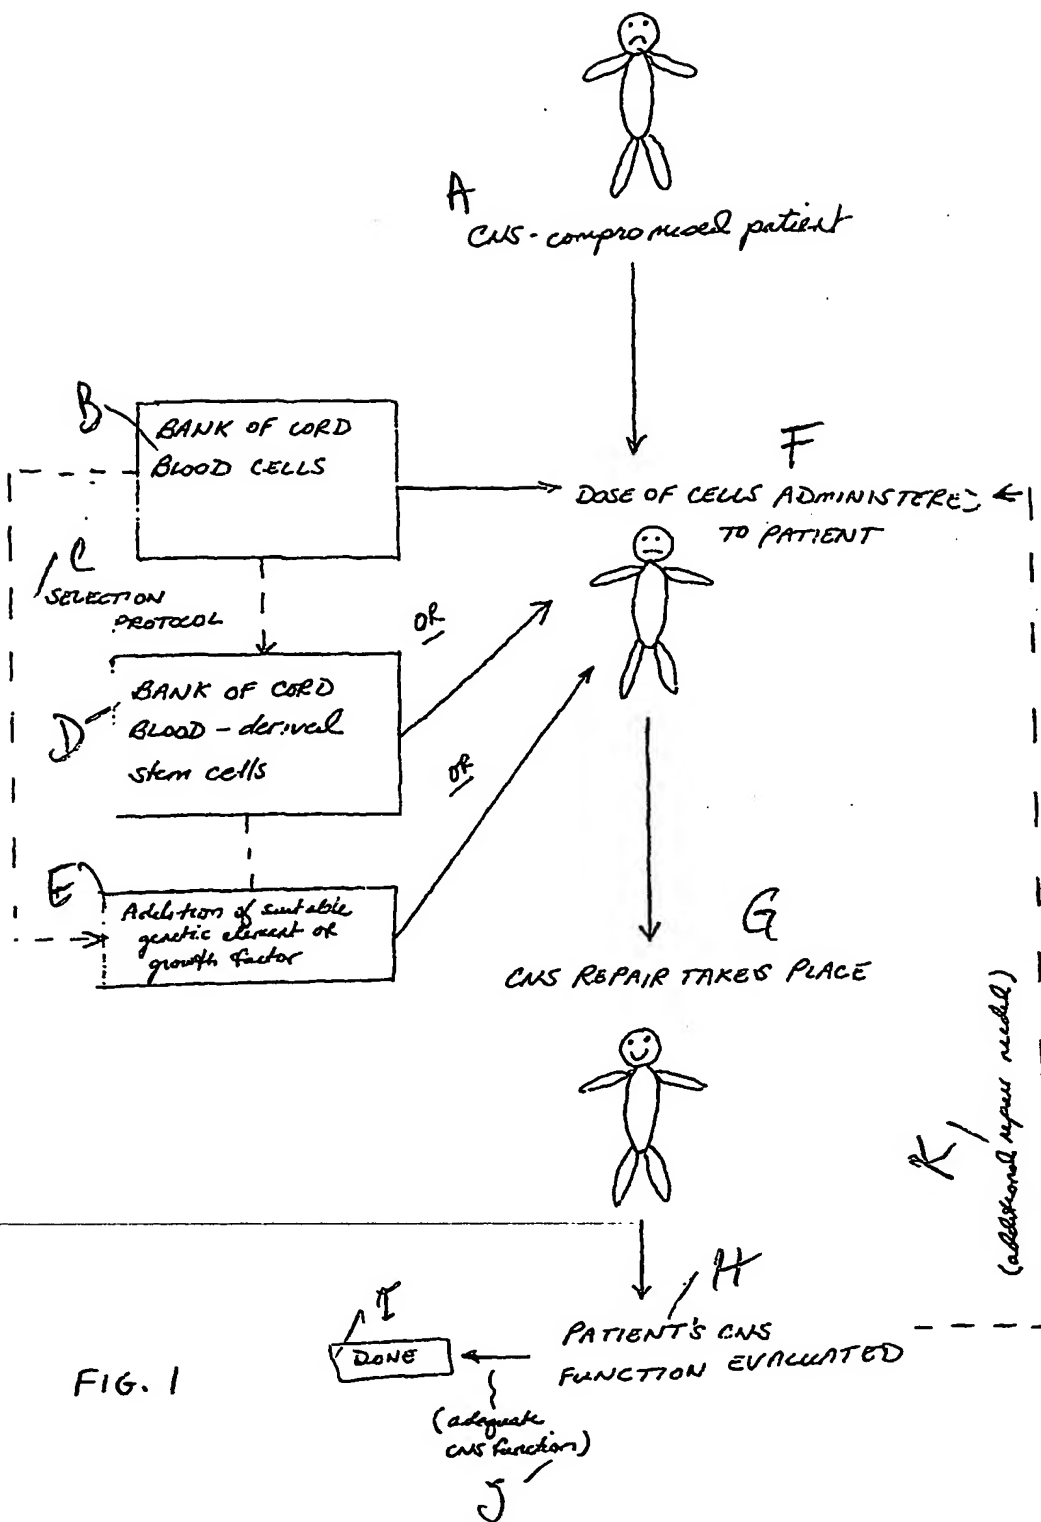 A
CNS-compromised patient
B
BANK OF CORD
BLOOD CELLS
F
DOSE OF CELLS ADMINISTERED
TO PATIENT
C
SELECTION
PROTOCOL
OR
D
BANK OF CORD
BLOOD-derived
stem cells
OR
E
Addition of suitable
genetic element or
growth factor
G
CNS REPAIR TAKES PLACE
K
(additional repair needed)
H
PATIENT'S CNS
FUNCTION EVALUATED
I
DONE
(adequate
CNS function)
J
FIG. 1